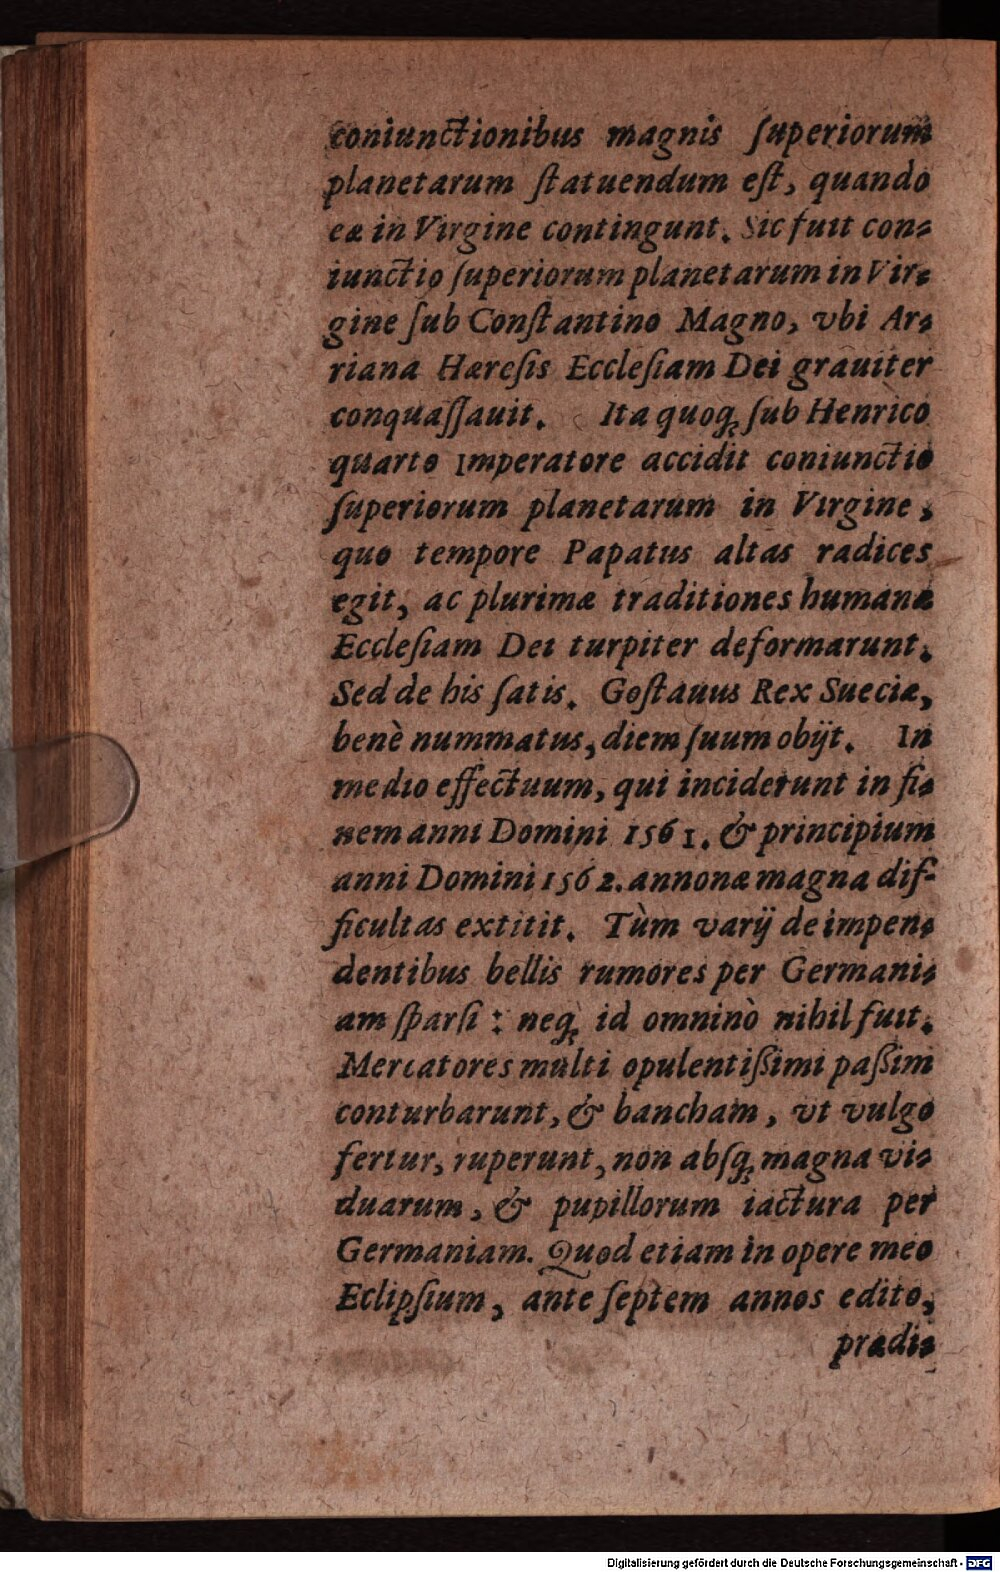 coniunctionibus magnis ſuperiorum
planetarum ſtatuendum eſt, quando
eæ in Virgine contingunt. Sic fuit con⸗
iunctio ſuperiorum planetarum in Vir⸗
gine ſub Conſtantino Magno, vbi Ar⸗
riana Hæreſis Eccleſiam Dei grauiter
conquaſſauit. Ita quoq; ſub Henrico
quarto Imperatore accidit coniunctio
ſuperiorum planetarum in Virgine,
quo tempore Papatus altas radices
egit, ac plurimæ traditiones humanæ
Eccleſiam Dei turpiter deformarunt.
Sed de his ſatis. Goſtauus Rex Sueciæ,
benè nummatus, diem ſuum obijt. In
medio effectuum, qui inciderunt in fi⸗
nem anni Domini 1561. & principium
anni Domini 1562. annonæ magna dif-
ficultas extitit. Tùm varij de impen⸗
dentibus bellis rumores per Germani⸗
am ſparſi : neq; id omninò nihil fuit.
Mercatores multi opulentißimi paßim
conturbarunt, & bancham, vt vulgo
fertur, ruperunt, non abſq; magna vi⸗
duarum, & pupillorum iactura per
Germaniam. Quod etiam in opere meo
Eclipſium, ante ſeptem annos edito,
prædi⸗
Digitalisierung gefördert durch die Deutsche Forschungsgemeinschaft - DFG